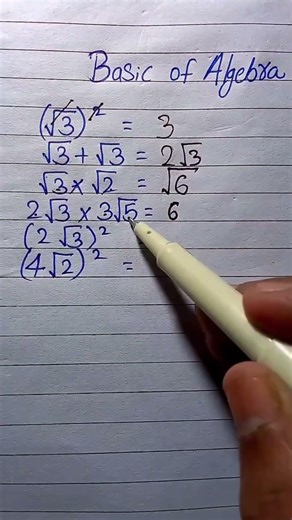 Basic of Algebra
(√3)² = 3
√3 + √3 = 2√3
√3 × √2 = √6
2√3 × 3√5 = 6
(2√3)²
(4√2)² =